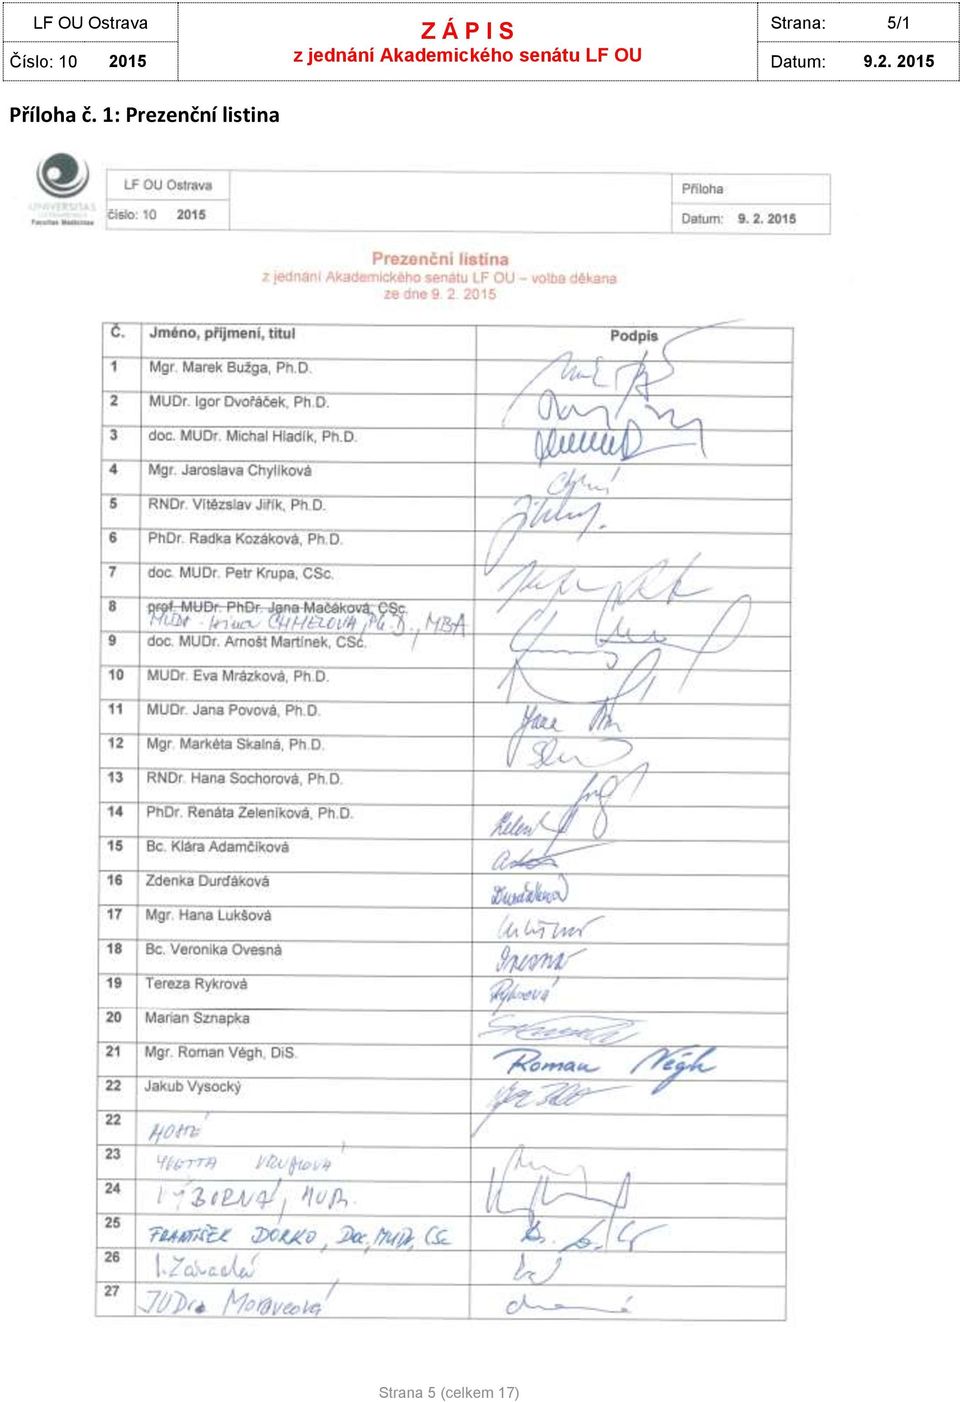 LF OU Ostrava
Z Á P I S
Strana: 5/1
Číslo: 10 2015
z jednání Akademického senátu LF OU
Datum: 9.2. 2015
Příloha č. 1: Prezenční listina
UNIVERSITAS
Facultas Medicinae
LF OU Ostrava
Příloha
číslo: 10 2015
Datum: 9. 2. 2015
Prezenční listina
z jednání Akademického senátu LF OU – volba děkana
ze dne 9. 2. 2015
Č. Jméno, příjmení, titul Podpis
1 Mgr. Marek Bužga, Ph.D.
2 MUDr. Igor Dvořáček, Ph.D.
3 doc. MUDr. Michal Hladík, Ph.D.
4 Mgr. Jaroslava Chylíková
5 RNDr. Vítězslav Jiřík, Ph.D.
6 PhDr. Radka Kozáková, Ph.D.
7 doc. MUDr. Petr Krupa, CSc.
8 prof. MUDr. PhDr. Jana Mačáková, CSc.
MUDr. Irina CHMELOVÁ, Ph.D., MBA
9 doc. MUDr. Arnošt Martínek, CSc.
10 MUDr. Eva Mrázková, Ph.D.
11 MUDr. Jana Povová, Ph.D.
12 Mgr. Markéta Skalná, Ph.D.
13 RNDr. Hana Sochorová, Ph.D.
14 PhDr. Renáta Zeleníková, Ph.D.
15 Bc. Klára Adamčíková
16 Zdenka Durďáková Durďáková
17 Mgr. Hana Lukšová
18 Bc. Veronika Ovesná Ovesná
19 Tereza Rykrová Rykrová
20 Marian Sznapka
21 Mgr. Roman Végh, DiS. Roman Végh
22 Jakub Vysocký
22 HOSTÉ
23 YVETTA VRUBLOVÁ
24 VÝBORNÁ, MUDr.
25 FRANTIŠEK DORKO, Doc. MUDr, CSc
26
27 JUDr. Moravcová
Strana 5 (celkem 17)